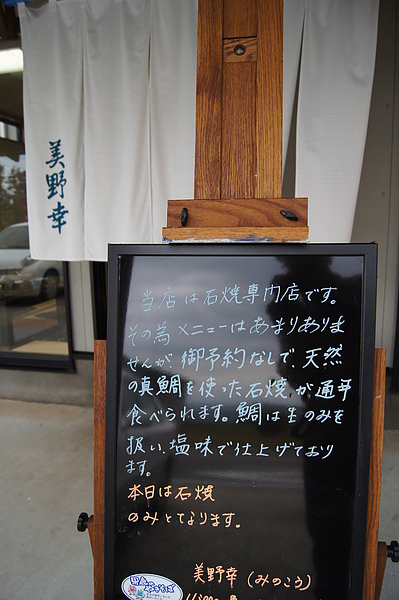 美野幸
当店は石焼専門店です。
その為メニューはあまりありま
せんが、御予約なしで、天然
の真鯛を使った石焼が通年
食べられます。鯛は生のみを
扱い、塩味で仕上げており
ます。
本日は石焼
のみとなります。
美野幸(みのこう)